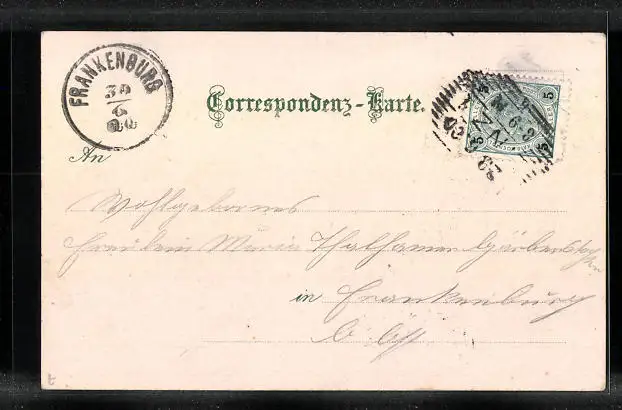 FRANKENBURG
30
6
00
Correspondenz-Karte.
An
Wohlgebornes
Fräulein Maria Thalhamer
in Frankenburg
5
5